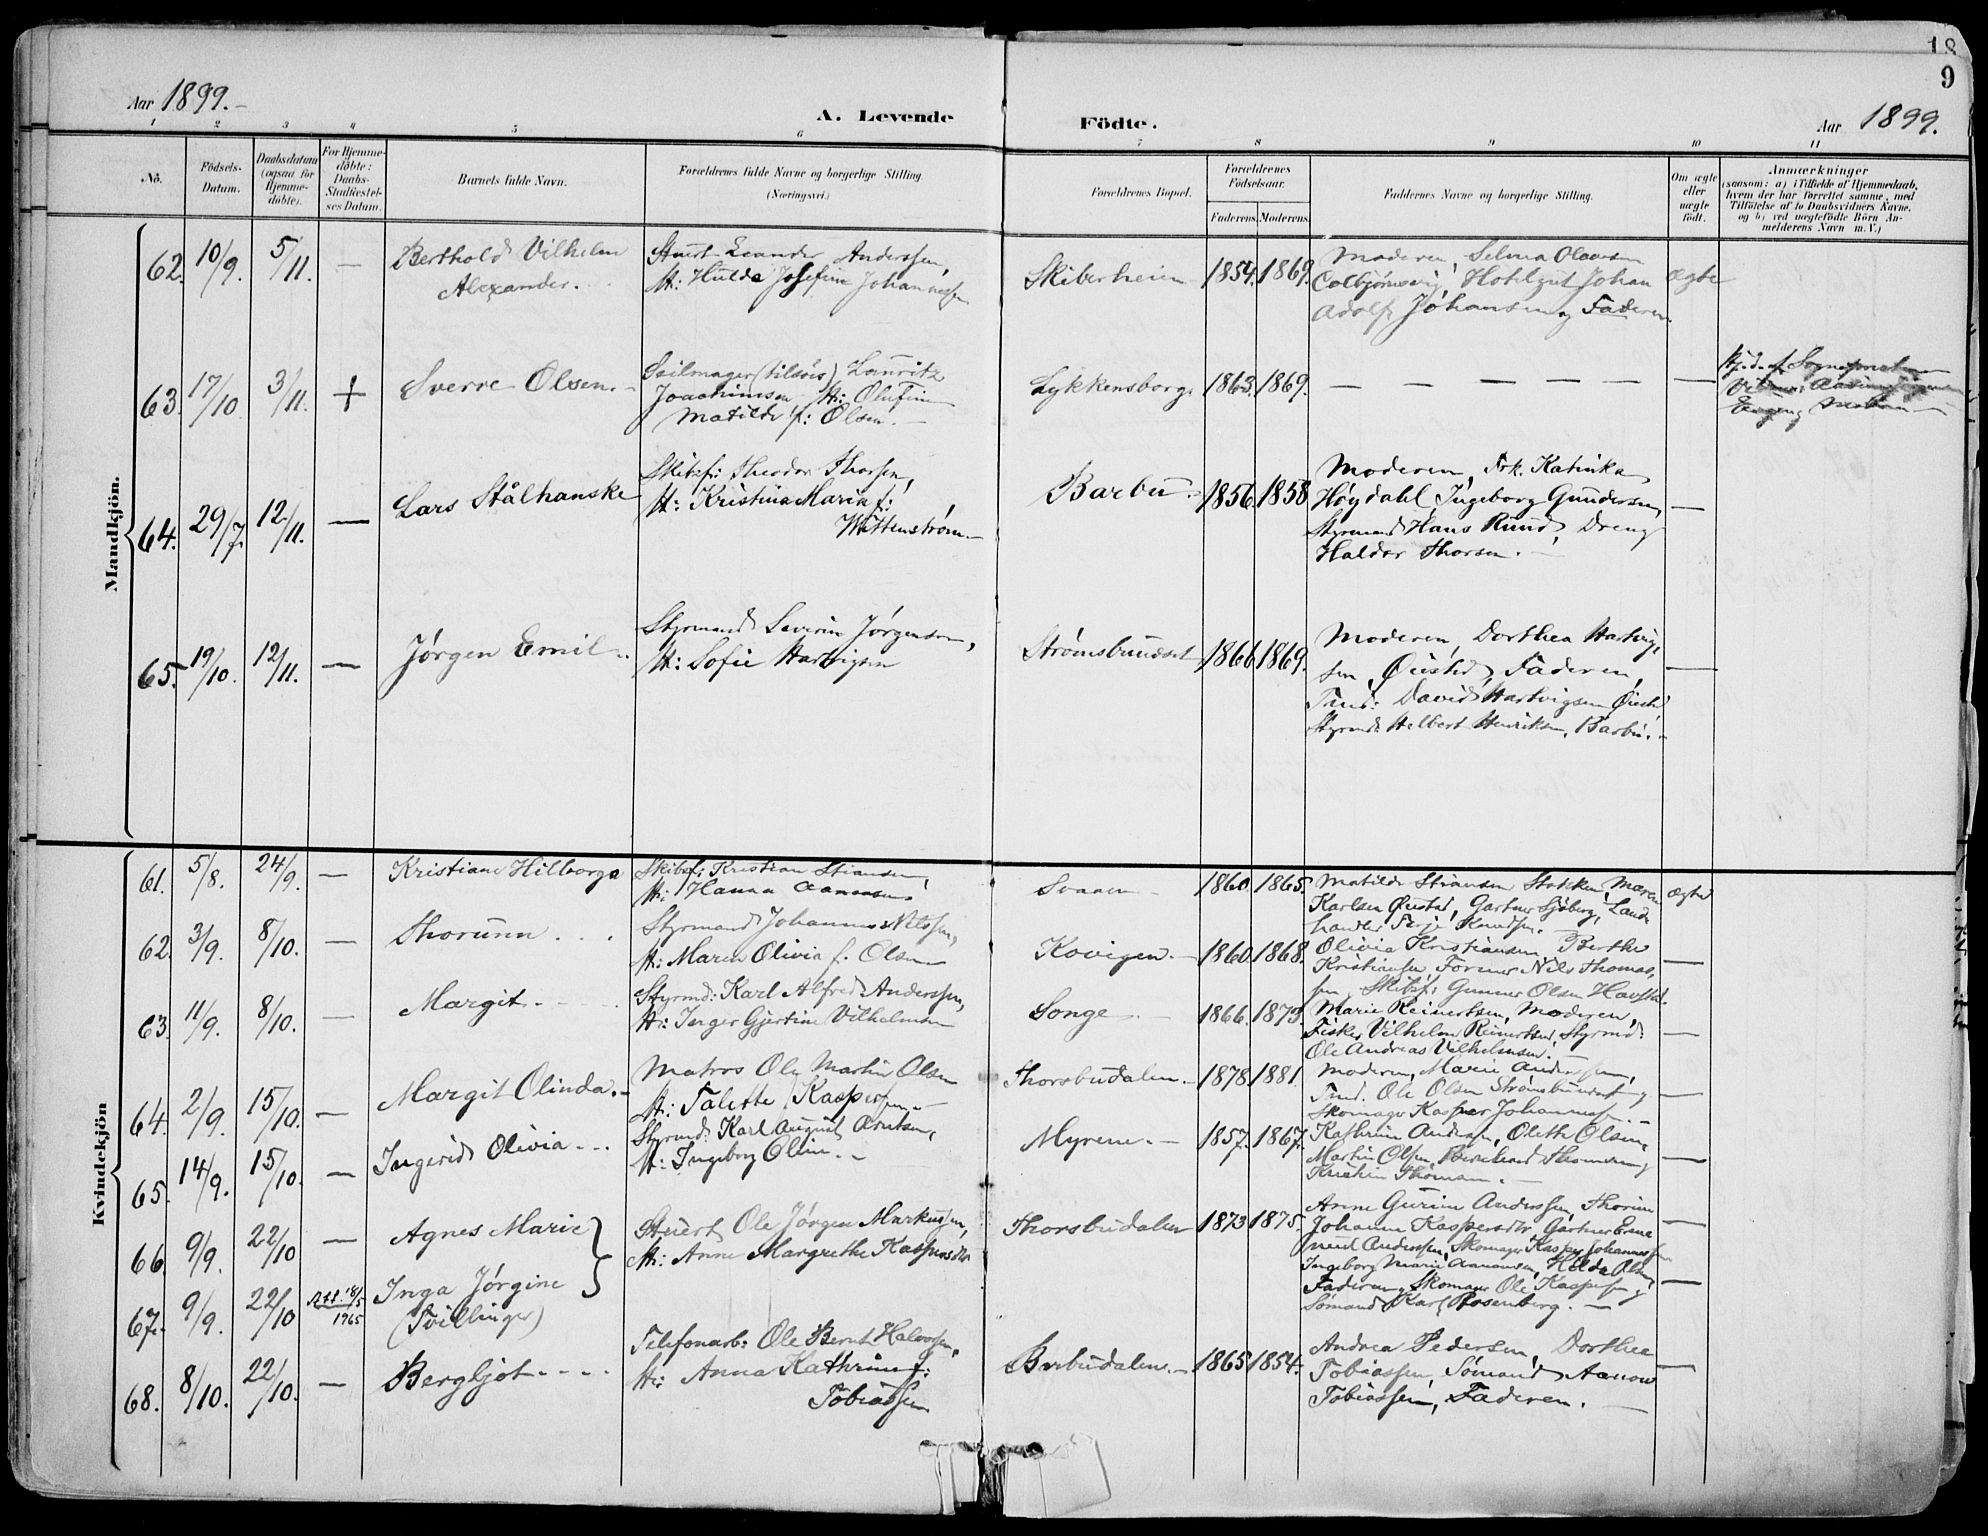 18
9
Aar 1899.-
A. Levende
Födte.
Aar 1899.
1 2 3 4 5 6 7 8 9 10 11
No.
Födsels-
Datum.
Daabsdatum
(ogsaa for
Hjemme-
döbte).
For Hjemme-
döbte:
Daabs-
Stadfæstel-
ses Datum.
Barnets fulde Navn.
Forældrenes fulde Navne og borgerlige Stilling.
(Næringsvei.)
Forældrenes Bopæl.
Forældrenes
Födselsaar.
Faderens. Moderens.
Faddernes Navne og borgerlige Stilling.
Om ægte
eller
uægte
födt.
Anmærkninger
(saasom: a) i Tilfælde af Hjemmedaab,
hvem der har forrettet samme, med
Tilföielse af to Daabsvidners Navne,
og b) ved uægtefödte Börn An-
melderens Navn m. V.)
Mandkjön.
62. 10/9. 5/11. —
Berthold Vilhelm
Alexander.
Stuert Leander Anderssen,
H: Hulda Josefine Johannessen
Skiberheien 1854. 1869.
Moderen, Selma Olaussen
Colbjørnsvig, Hotelgut Johan
Adolf Johansen og Faderen.
Ægte
63. 17/10 3/11. +
Sverre Olsen. -
Seilmager (tilsøis) Lauritz
Joachimsen H: Olufine
Matilde f: Olsen. -
Lykkensborg. 1863. 1869. — — — — — — —
64. 29/7. 12/11. —
Lars Stålhanske
Skibsf: Theodor Thorsen,
H: Kristina Maria f:
Wittenstrøm. -
Barbu. 1856. 1858
Moderen, Frk. Katinka
Høydahl, Ingeborg Gundersen,
Styrmand Hans Ruud, Dreng
Haldor Thorsen. -
—
65. 19/10. 12/11. —
Jørgen Emil..
Styrmand Severin Jørgensen,
H: Sofie Hartvigsen
Strømsbuaaset 1866 1869.
Moderen, Dorthea Hartvig-
sen, Øiestad, Faderen,
Tømd: David Hartvigsen Øiest
Styrmd: Helbert Henriksen, Barbu. -
—
Kvindekjön
61. 5/8. 24/9. —
Kristiane Hilborga
Skibsf: Kristian Stiansen,
H: Hanna Aanonsen
Svaaen 1860. 1865.
Matilde Stiansen Stokken, Maren
Karlsen Øiestad, Gartner Sjøberg, Land-
handler Terje Knudsen. -
ægte
62. 3/9. 8/10. —
Thorunn. . .
Styrmand Johannes Nilssen,
H: Maren Olivia f. Olsen
Kovigen. - 1860. 1868.
Olivia Kristiansen, Berthe
Kristiansen, Former Nils Thomas-
sen, Skibsf: Gunner Olsen Havstad.
—
63. 11/9. 8/10. —
Margit. - - -
Styrmd: Karl Alfred Anderssen,
H: Inger Gjertine Vilhelmsen
Songe. 1866. 1873.
Marie Reinertsen, Moderen,
Fisker Vilhelm Reinertsen, Styrmd:
Ole Andreas Vilhelmsen. -
—
64. 2/9. 15/10. —
Margit Olinda. -
Matros Ole Martin Olsen
H: Talette Kaspersen. -
Thorsbudalen. - 1878. 1881.
Moderen, Marie Anderssen,
Tømd. Ole Olsen Strømsbuaaset og
Skomager Kasper Johannessen. -
—
65. 14/9. 15/10. —
Ingerid Olivia - - .
Styrmd: Karl August Arntsen,
H: Ingeborg Oline. - -
Myrene. - 1857. 1867.
Kathrine Andersen, Olette Olsen,
Martin Olsen, Bernhard Thomsen og
Kristian Thomsen. -
—
66. 9/9. 22/10 —
Agnes Marie
Stuert Ole Jørgen Markussen,
H: Anne Margrethe Kaspersdtr
Thorsbudalen 1873 1875.
Anne Gurine Anderssen, Thorine
Johanne Kaspersdtr, Gartner Emanuel Anderssen, Skomager Kasper Johannessen
—
67. 9/9. 22/10 Att. 18/5
1965
Inga Jørgine
(Tvillinger)
Ingeborg Marie Aanonsen, Hilda Olsen,
Faderen, Skomager Ole Kaspersen og
Sømand Karl Rosenberg. -
—
68. 8/10. 22/10. —
Bergljot - - - -
Telefonarb: Ole Bernt Halvorsen,
H: Anna Kathrine f:
Tobiassen
Barbudalen. - 1865 1854.
Andrea Pedersen, Dorthea
Tobiassen, Sømand Aanon
Tobiassen, Faderen.
—